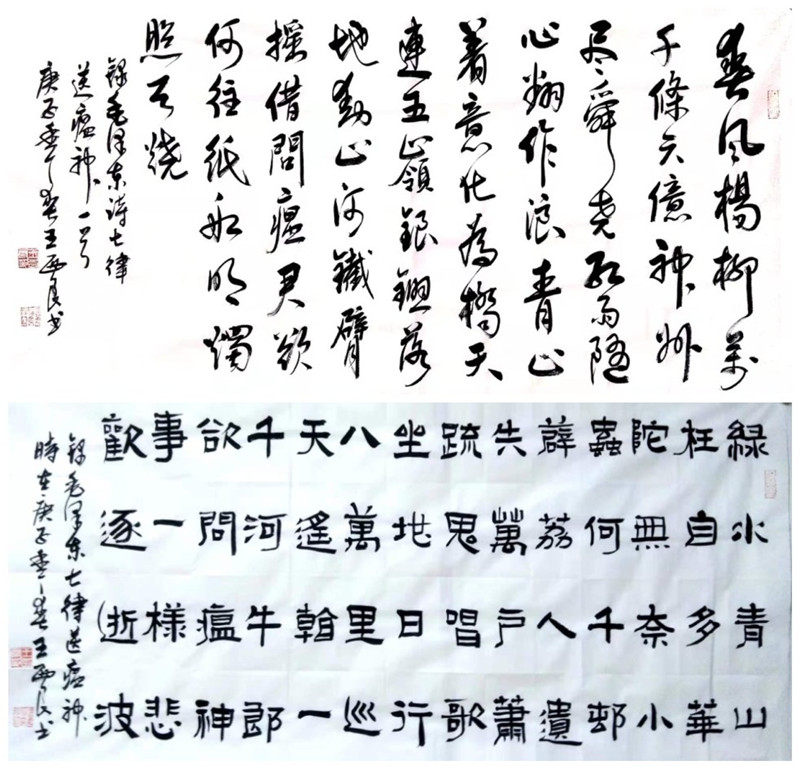 春风楊柳萬
千條六億神州
尽舜尧红雨随
心翻作浪青山
着意化為橋天
連五嶺銀鋤落
地動山河鐵臂
摇借問瘟君欲
何往纸船明燭
照天燒
録毛泽东诗七律
送瘟神一首
庚子春王西良书
緑水青山
枉自多華
陀無奈小
蟲何千邨
薜荔人遺
矢萬戶蕭
疏鬼唱歌
坐地日行
八萬里巡
天遥看一
千河牛郎
欲問瘟神
事一樣悲
歡逐逝波
録毛泽东七律送瘟神
時在庚子春王西良